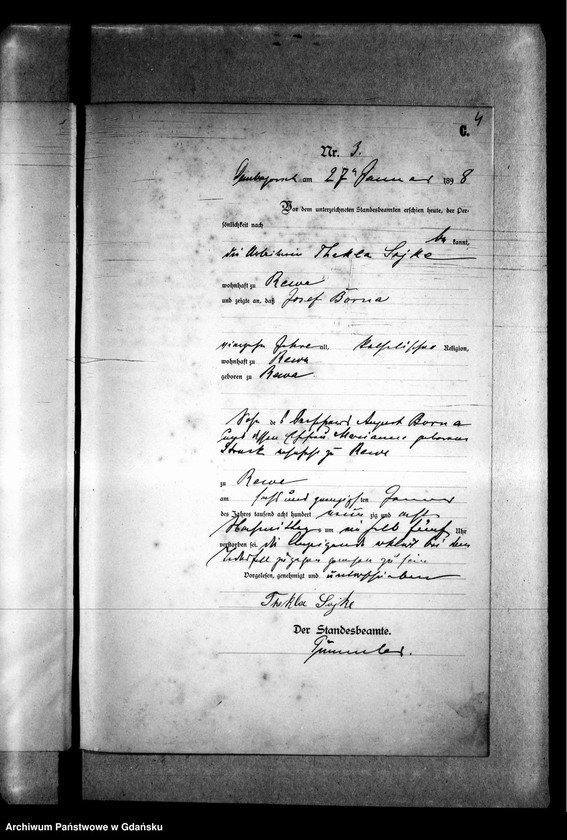 4
C.
Nr. 3.
am 27 Januar 1898
Vor dem unterzeichneten Standesbeamten erschien heute, der Per-
sönlichkeit nach
be kannt,
die Arbeiterin Thekla Sojke
wohnhaft zu Rewa
und zeigte an, daß Josef Borna
Jahre alt, katholischer Religion,
wohnhaft zu Rewa
geboren zu Rewa
Sohn des August Borna
und dessen Ehefrau Marianne geborene
Struck wohnhaft zu Rewa
zu Rewa
am sechs und zwanzigsten Januar
des Jahres tausend acht hundert neun zig und acht
Nachmittags um Uhr
verstorben sei. Die Anzeigende erklärt bei dem
Sterbefall zugegen gewesen zu sein
Vorgelesen, genehmigt und unterschrieben
Thekla Sojke
Der Standesbeamte.
Archiwum Państwowe w Gdańsku